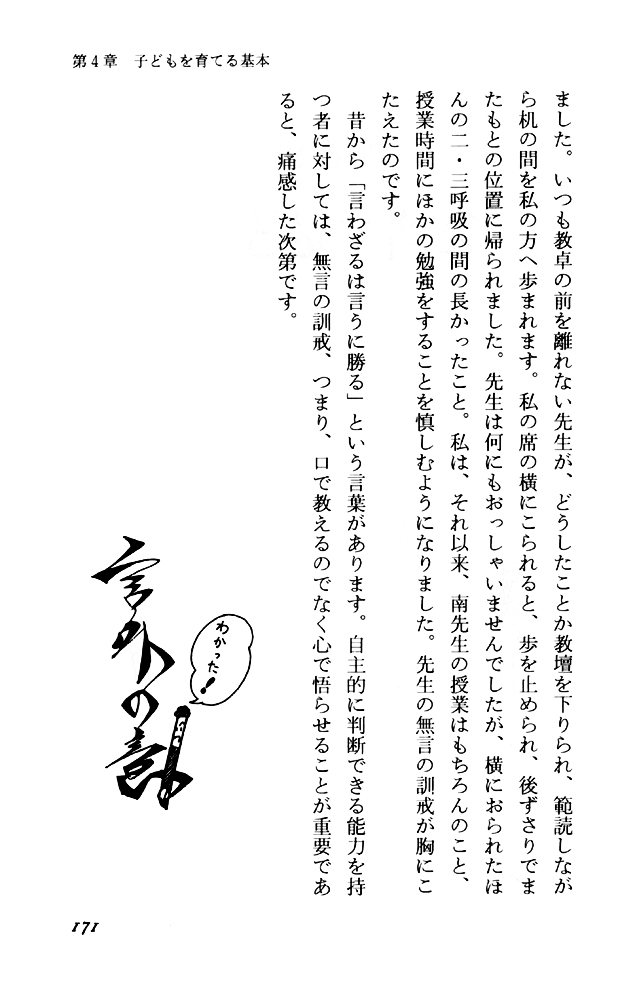 第4章　子どもを育てる基本
ました。いつも教卓の前を離れない先生が、どうしたことか教壇を下りられ、範読しなが
ら机の間を私の方へ歩まれます。私の席の横にこられると、歩を止められ、後ずさりでま
たもとの位置に帰られました。先生は何にもおっしゃいませんでしたが、横におられたほ
んの二・三呼吸の間の長かったこと。私は、それ以来、南先生の授業はもちろんのこと、
授業時間にほかの勉強をすることを慎しむようになりました。先生の無言の訓戒が胸にこ
たえたのです。
昔から「言わざるは言うに勝る」という言葉があります。自主的に判断できる能力を持
つ者に対しては、無言の訓戒、つまり、口で教えるのでなく心で悟らせることが重要であ
ると、痛感した次第です。
わかった!
言外の意
171